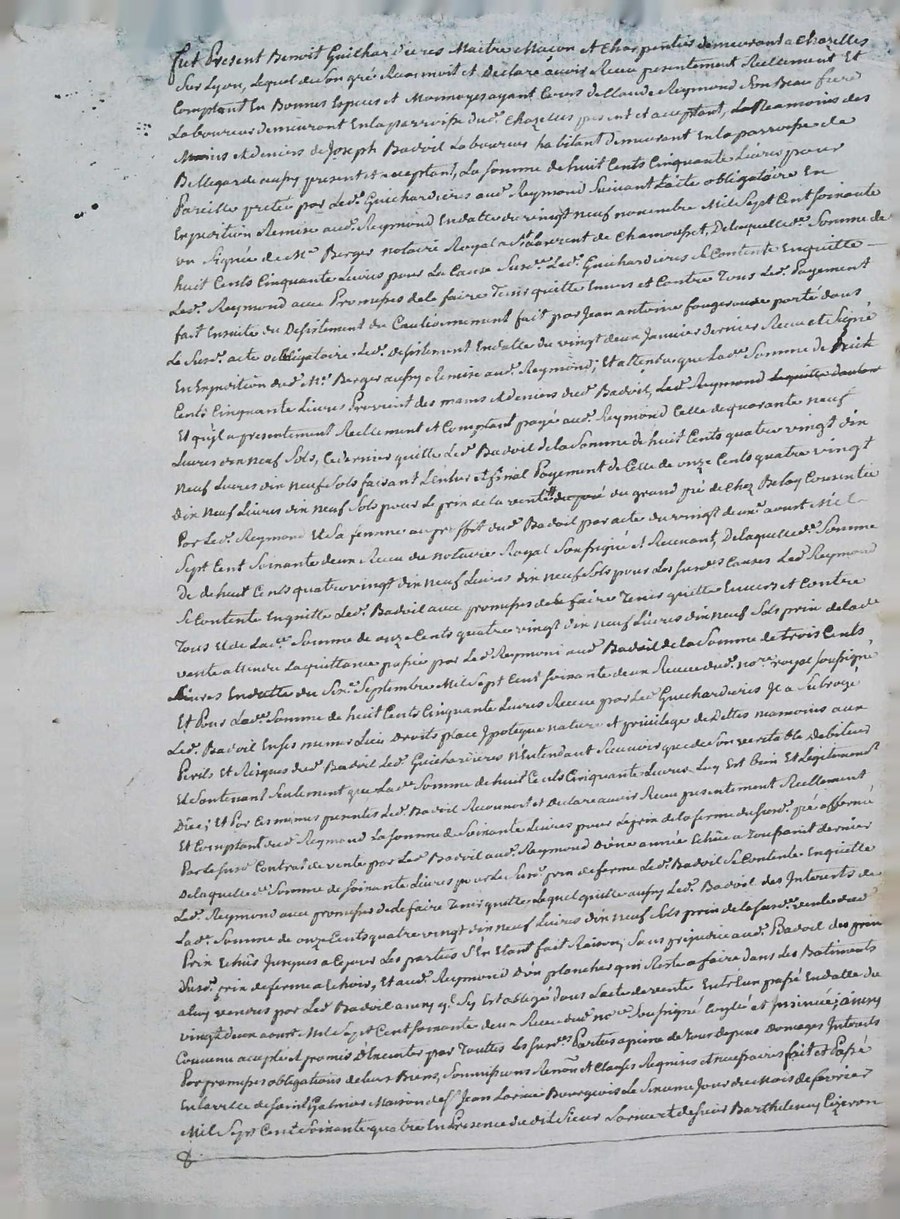 fut Present Benoit Guilhardieres Maitre Macon et Charpentier demeurant a Chazelles
sur Lyon, lequel de son gré Reconnoit et Declare avoir Receu presentement Reellement Et
Comptant En Bonnes Especes et Monnoyes ayant Cours de Claude Reymond son Beau frere
Laboureur demeurant En la parroisse dud. Chazelles present et acceptant,
Mains et deniers de Joseph Badoil Laboureur habitant demeurant En la parroisse de
Bellegarde aussy present et acceptant, La somme de huit Cents Cinquante Livres pour
Pareille pretée par Led. Guichardieres aud. Reymond suivant Lacte obligatoire En
Expedition Remise aud. Reymond En datte du vingt neuf novembre Mil Sept Cent soixante
un signée de Me. Berger notaire Royal a St Laurent de Chamousset, De laquelle de. somme de
huit Cents Cinquante Livres pour La Cause susde. Led. Guichardieres se Contente En quitte
Led. Reymond avec Promesses de le faire Tenir quitte Envers et Contre Tous Led. Payement
fait Ensuite du Desistement du Cautionnement fait par Jean antoine fougerouse porté dans
Le susd. acte obligatoire Led. desistement En datte du vingt deux Janvier dernier Receu et signé
En Expedition dud. Me. Berger aussy Remise aud. Reymond; Et attendu que Lade. somme de huit
Cents Cinquante Livres Provient des mains et deniers dud. Badoil, Led. Reymond
Et qu'il a presentement Reellement et Comptant payé aud. Reymond Celle de quarante neuf
Livres dix neuf sols, Ce dernier quitte Led. Badoil de la somme de huit Cents quatre vingt dix
Neuf Livres dix neuf sols faisant L'entier et final Payement de Celle de onze Cents quatre vingt
Dix Neuf Livres dix neuf sols pour Le prix de la vente du pré du grand pré de Chez Consentie
Par Led. Reymond Et sa femme au proffit dud. Badoil par acte du vingt deux. aoust Mil
Sept Cent soixante deux Receu du notaire Royal soussigné et Recevant, De laquelle de. somme
De de huit Cents quatre vingt dix neuf Livres dix neuf sols pour Les susd. Causes Led. Reymond
se Contente En quitte Led. Badoil avec promesses de le faire Tenir quitte Envers et Contre
Tous Et de Lade. somme de onze Cents quatre vingt dix neuf Livres dix neuf sols prix de lade.
vente attendu La quittance passée par Led. Reymond aud. Badoil de la somme de trois Cents
Livres En datte du Septembre Mil Sept Cent soixante deux Receue dud. nore. royal soussigné
Et Pour Lade. somme de huit Cents Cinquante Livres Receue par Led. Guichardieres Il a subrogé
Led. Badoil En ses mêmes Lieu Droits place Ypoteque nature et privilege de Dettes neamoins aux
Perils Et Risques dud. Badoil Led. Guichardieres N'Entendant
Et soutenant seulement que Lade. somme de huit Cents Cinquante Livres Luy Est bien Et Legitement
Düe; Et Par Ces mêmes presentes Led. Badoil Reconnoit et declare avoir Receu presentement Reellement
Et Comptant dud. Reymond La somme de soixante Livres pour Le prix de la ferme du susd. pré affermé
Par le susd. Contrat de vente par Led. Badoil aud. Reymond D'une année Echüe a Toussaint dernier
De laquelle de. somme de soixante Livres pour Le susd. prix de ferme Led. Badoil se Contente En quitte
Led. Reymond avec promesses de le faire Tenir quitte Lequel quitte aussy Led. Badoil des Interets de
Lade. somme de onze Cents quatre vingt dix neuf Livres dix neuf sols prix de la susde. vente dud.
Prix Echus Jusques a Ce jour Les parties s'En Etant fait Raison; sans prejudice aud. Badoil des prix
Dusd. prix de ferme a Echoir, Et aud. Reymond D'un plancher qui Reste a faire dans Les Batiments
a luy vendus par Led. Badoil ainsy qu'il sy Est obligé dans Lacte de vente Entr'eux passé En datte du
vingt deux aoust Mil Sept Cent soixante deux Receu dud. nore. soussigné Controllé et Insinué; ainsy
Convenu accepté et promis d'Executer par Toutes Les susdes. Parties a peine de Tous Depens Domages Interets
Par promesses obligations de leurs Biens, soumissions Renon. et Clauses Requises et necessaires fait et Passé
En la ville de saint Galmier Maison de sr. Jean Lornie Bourgeois Le Jour du Mois de fevrier
Mil Sept Cent soixante quatre En Presence dudit sieur Barthelemy Cizeron
&.